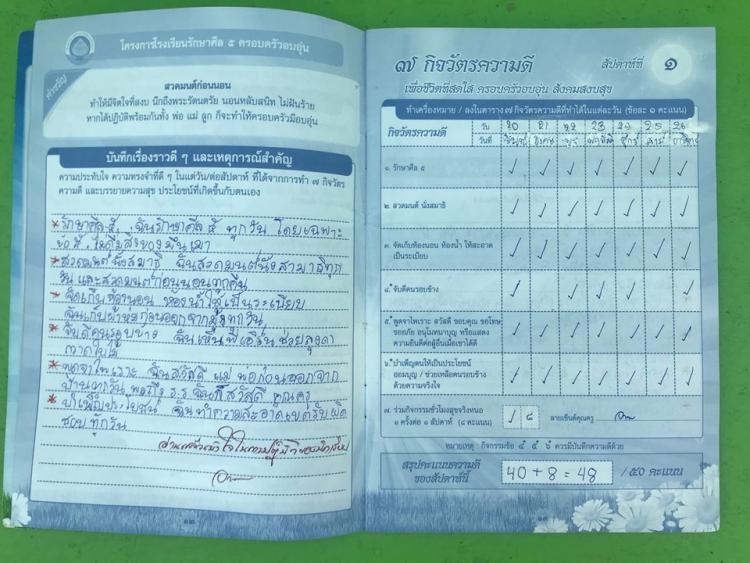 โครงการโรงเรียนรักษาศีล ๕ ครอบครัวอบอุ่น
สวดมนต์ก่อนนอน
ทำให้มีจิตใจที่สงบ นึกถึงพระรัตนตรัย นอนหลับสนิท ไม่ฝันร้าย
หากได้ปฏิบัติพร้อมกันทั้ง พ่อ แม่ ลูก ก็จะทำให้ครอบครัวมีอบอุ่น
บันทึกเรื่องราวดี ๆ และเหตุการณ์สำคัญ
ความประทับใจ ความทรงจำที่ดี ๆ ในแต่วัน/ต่อสัปดาห์ ที่ได้จากการทำ ๗ กิจวัตร
ความดี และบรรยายความสุข ประโยชน์ที่เกิดขึ้นกับตนเอง
* รักษาศีล ๕ ฉันรักษาศีล ๕ ทุกวัน โดยเฉพาะ
ข้อ ๕ ไม่ดื่มสิ่งของมึนเมา
* สวดมนต์นั่งสมาธิ ฉันสวดมนต์นั่งสามาธิทุก
วัน และสวดมนต์ก่อนนอนทุกคืน
* จัดเก็บห้องนอน ห้องน้ำให้เป็นระเบียบ
ฉันเก็บผ้าห่มก่อนออกจากมุ้งทุกวัน
* จับดีคนรอบข้าง ฉันเห็นพี่ ช่วยลุงดา
กวาดใบไม้
* พูดจาไพเราะ ฉันสวัสดี แม่ พ่อก่อนออกจาก
บ้านทุกวัน พอถึง ร.ร. ฉันก็สวัสดี คุณครู
* บำเพ็ญประโยชน์ ฉันทำความสะอาดเขตรับผิด
ชอบทุกวัน
๑๒
๗ กิจวัตรความดี สัปดาห์ที่ ๑
เพื่อชีวิตที่สดใส ครอบครัวอบอุ่น สังคมสงบสุข
ทำเครื่องหมาย / ลงในตาราง ๗ กิจวัตรความดีที่ทำได้ในแต่ละวัน (ข้อละ ๑ คะแนน)
กิจวัตรความดี วัน 20 21 22 23 24 25 26
วันที่ จันทร์ อังคาร พุธ พฤหัสบดี ศุกร์ เสาร์ อาทิตย์
๑. รักษาศีล ๕ / / / / / / /
๒. สวดมนต์ นั่งสมาธิ / / / / / / /
๓. จัดเก็บห้องนอน ห้องน้ำ ให้สะอาด
เป็นระเบียบ / / / / / / /
๔. จับดีคนรอบข้าง / / / / /
๕. พูดจาไพเราะ สวัสดี ขอบคุณ ขอโทษ
ขออภัย อนุโมทนาบุญ หรือแสดง
ความยินดีต่อผู้อื่นเมื่อเขาได้ดี / / / / / / /
๖. บำเพ็ญตนให้เป็นประโยชน์
ออมบุญ / ช่วยเหลือคนรอบข้าง
ด้วยความจริงใจ / / / / / / /
๗. ร่วมกิจกรรมชั่วโมงสุจริงหนอ
๑ ครั้งต่อ ๑ สัปดาห์ (๘ คะแนน) / ๘ ลายเซ็นต์คุณครู
หมายเหตุ กิจกรรมข้อ ๔ ๕ ๖ ควรมีบันทึกความดีด้วย
สรุปคะแนนความดี
ของสัปดาห์นี้ 40 + 8 = 48 / ๕๐ คะแนน